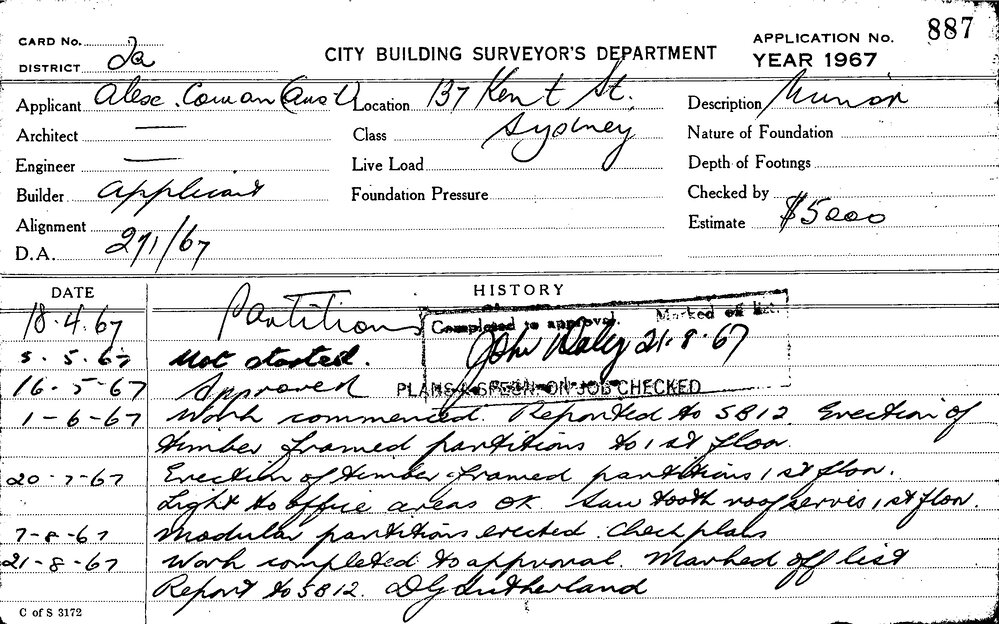 CARD No.
DISTRICT 2a
CITY BUILDING SURVEYOR'S DEPARTMENT
APPLICATION No. 887
YEAR 1967
Applicant Alex. Cowan (Aust) Location 137 Kent St. Description Minor
Architect — Class Sydney Nature of Foundation
Engineer — Live Load Depth of Footings
Builder Applicant Foundation Pressure Checked by
Alignment Estimate $5000
D.A. 271/67
DATE HISTORY
18.4.67 Partitions
Completed to approval. Marked off list.
5.5.67 Not started. John Daley 21.8.67
16-5-67 Approved PLANS & SPECN. ON JOB CHECKED
1-6-67 Work commenced. Reported to SB12. Erection of
timber framed partitions to 1st floor.
20-7-67 Erection of timber framed partitions 1st floor.
Light to office areas OK. Saw tooth roof serves 1st floor.
7-8-67 Modular partitions erected. Check plans
21-8-67 Work completed to approval. Marked off list
Report to SB12. DG Sutherland
C of S 3172